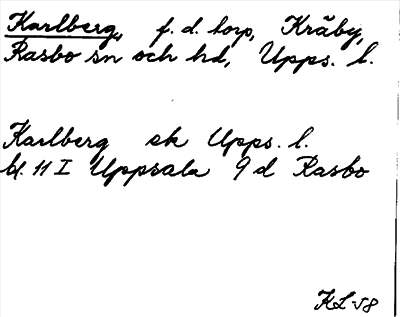 Karlberg, f. d. torp, Kråby,
Rasbo sn och hd, Upps. l.
Karlberg ek Upps. l.
bl. 11 I Uppsala 9 d Rasbo
KL-58